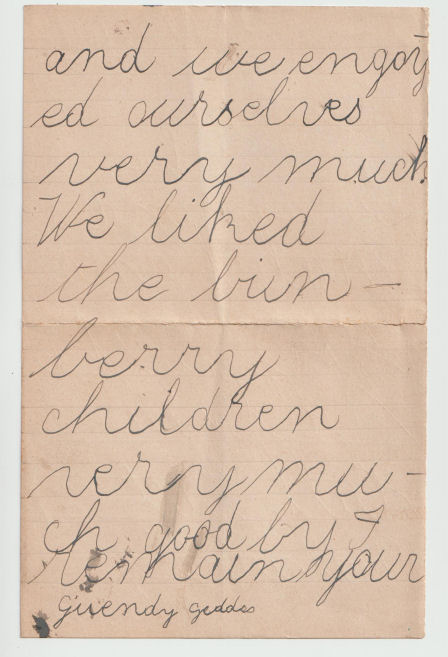 and we enjoy
ed ourselves
very much
We liked
the bun-
berry
children
very mu-
ch good by I
remain your
Gwendy geddes